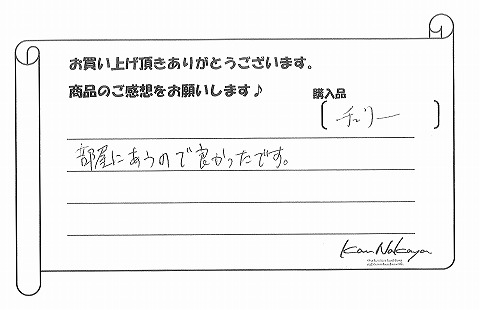 お買い上げ頂きありがとうございます。
商品のご感想をお願いします♪
購入品
チェリー
部屋にあうので良かったです。
Kan Nakaya